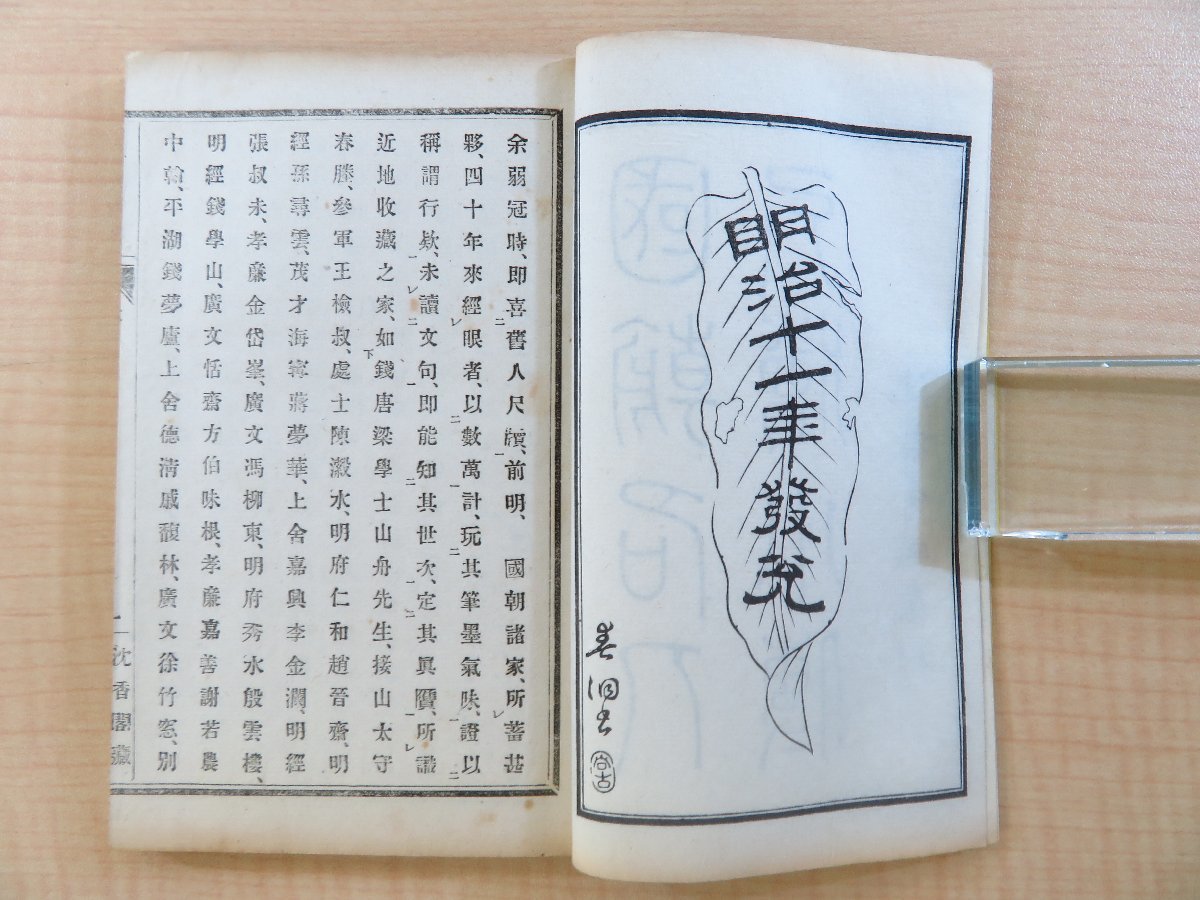 明治十一年發兌
春洞書
尚古
余弱冠時、即喜舊人尺牘、前明、 國朝諸家、所蓄甚
夥、四十年來經眼者、以數萬計、玩其筆墨氣味、證以
稱謂行欵、未讀文句、即能知其世次、定其眞贋、所識
近地收藏之家、如錢唐梁學士山舟先生、接山太守
春塍、參軍王檢叔、處士陳瀔水、明府仁和趙晉齋、明
經孫尋雲、茂才海寧蔣夢華、上舍嘉興李金瀾、明經
張叔未、孝廉金岱峯、廣文馮柳東、明府秀水殷雲樓、
明經錢學山、廣文恬齋方伯味根、孝廉嘉善謝若農
中翰、平湖錢夢廬、上舍德清戚馥林、廣文徐竹窓、別
一 沈香閣藏